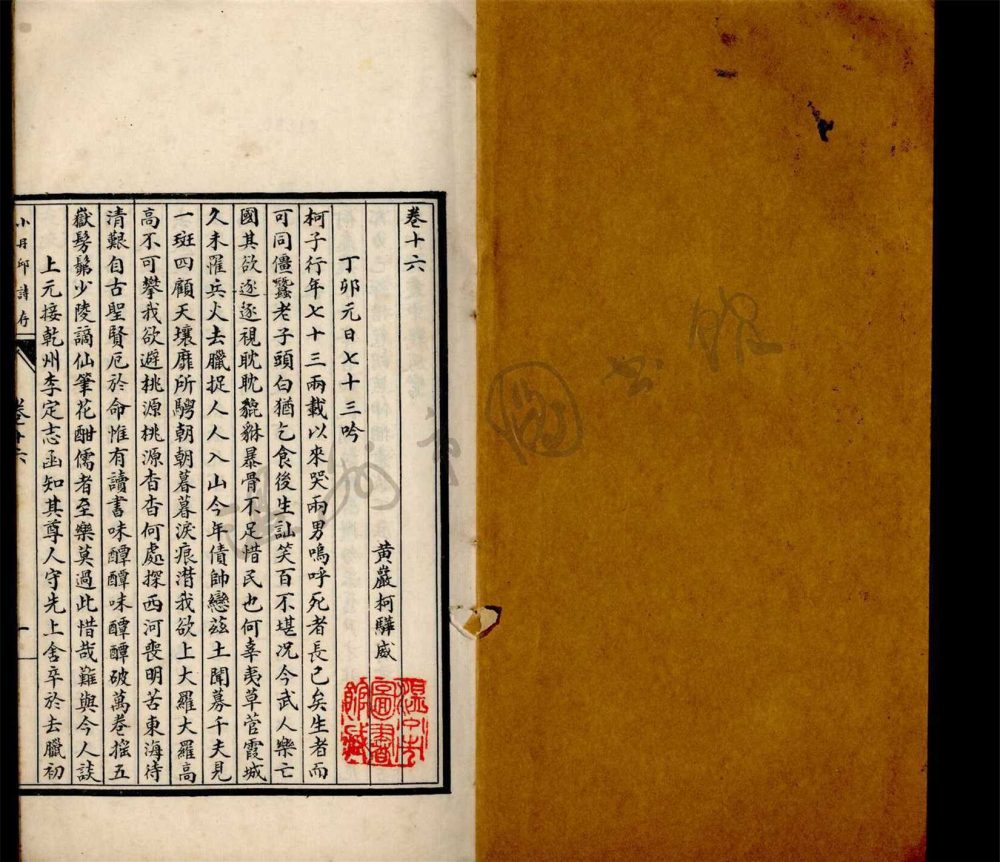 卷十六
黃巖柯驊威
丁卯元日七十三吟
柯子行年七十三兩載以來哭兩男嗚呼死者長已矣生者而
可同僵蠶老子頭白猶乞食後生訕笑百不堪况今武人樂亡
國其欲逐逐視眈眈貔貅暴骨不足惜民也何辜夷草菅霞城
久未罹兵火去臘捉人人入山今年債帥戀茲土聞募千夫見
一斑四顧天壤靡所騁朝朝暮暮淚痕潸我欲上大羅大羅高
高不可攀我欲避桃源桃源杳杳何處探西河喪明苦東海待
清艱自古聖賢厄於命惟有讀書味醰醰味醰醰破萬卷摇五
嶽髣髴少陵謫仙筆花酣儒者至樂莫過此惜哉難與今人談
上元接乾州李定志函知其尊人守先上舍卒於去臘初
小丹邱詩存
卷十六
一
溫州市
圖書
館藏
溫州市圖書館